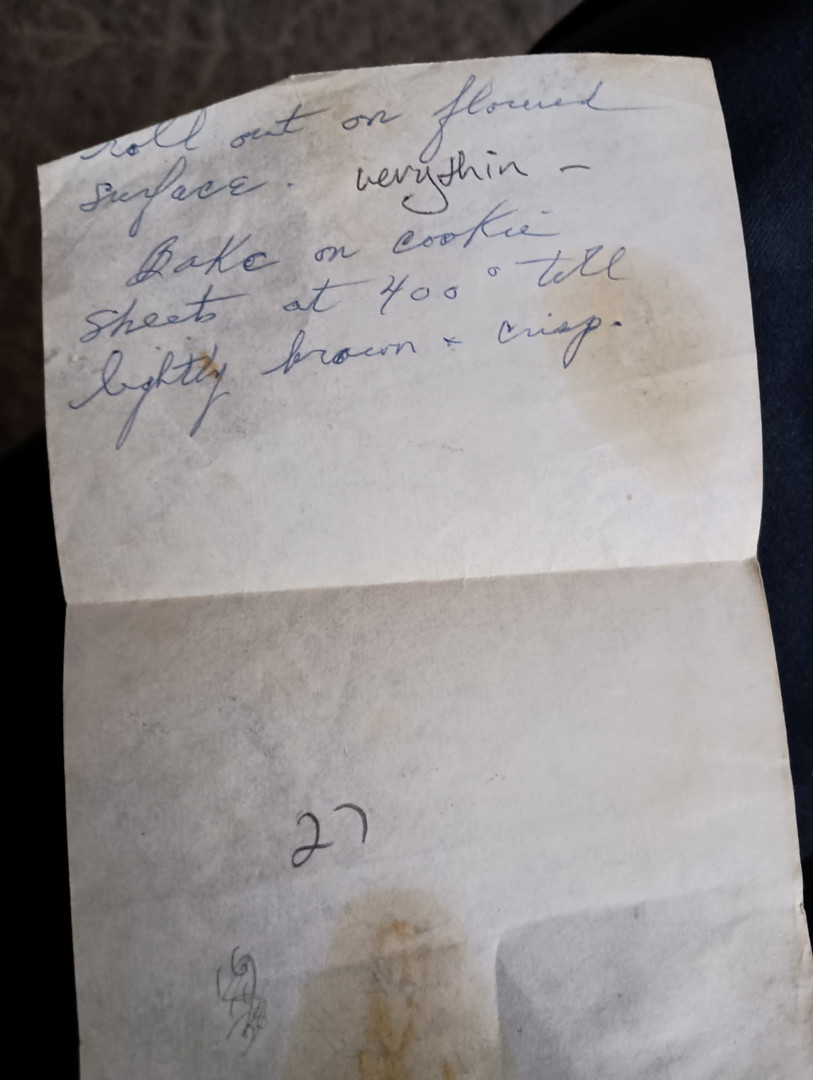 roll out on floured
surface. very thin -
Bake on cookie
sheets at 400° till
lightly brown & crisp.
27